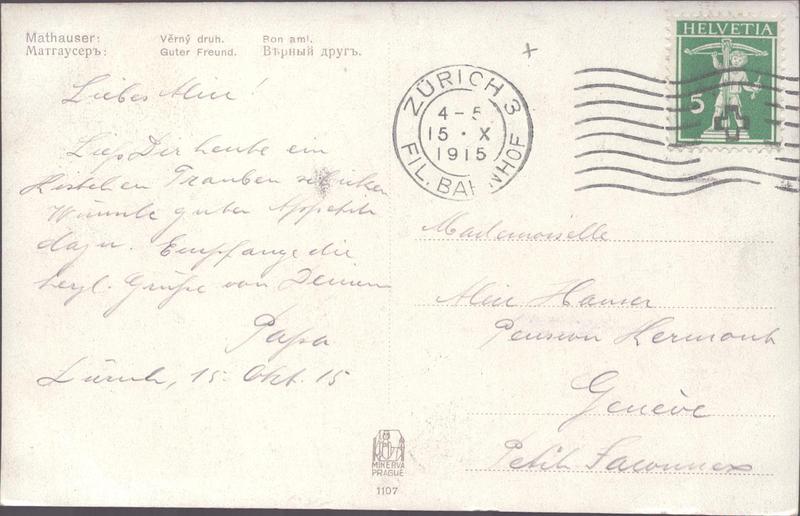 Mathauser: Věrný druh. Bon ami.
Матгаусеръ: Guter Freund. Вѣрный другъ.
Liebes Alice!
Ließ Dir heute ein
Kistchen Trauben schicken
Wünsche guten Appetit
dazu. Empfange die
herzl. Grüße von Deinem
Papa
Zürich, 15. Okt. 15
ZÜRICH 3
4-5
15 · X
1915
FIL. BAHNHOF
HELVETIA
5
Mademoiselle
Alice Hauser
Pension Hermont
Genève
Petit Saconnex
MINERVA
PRAGUE
1107